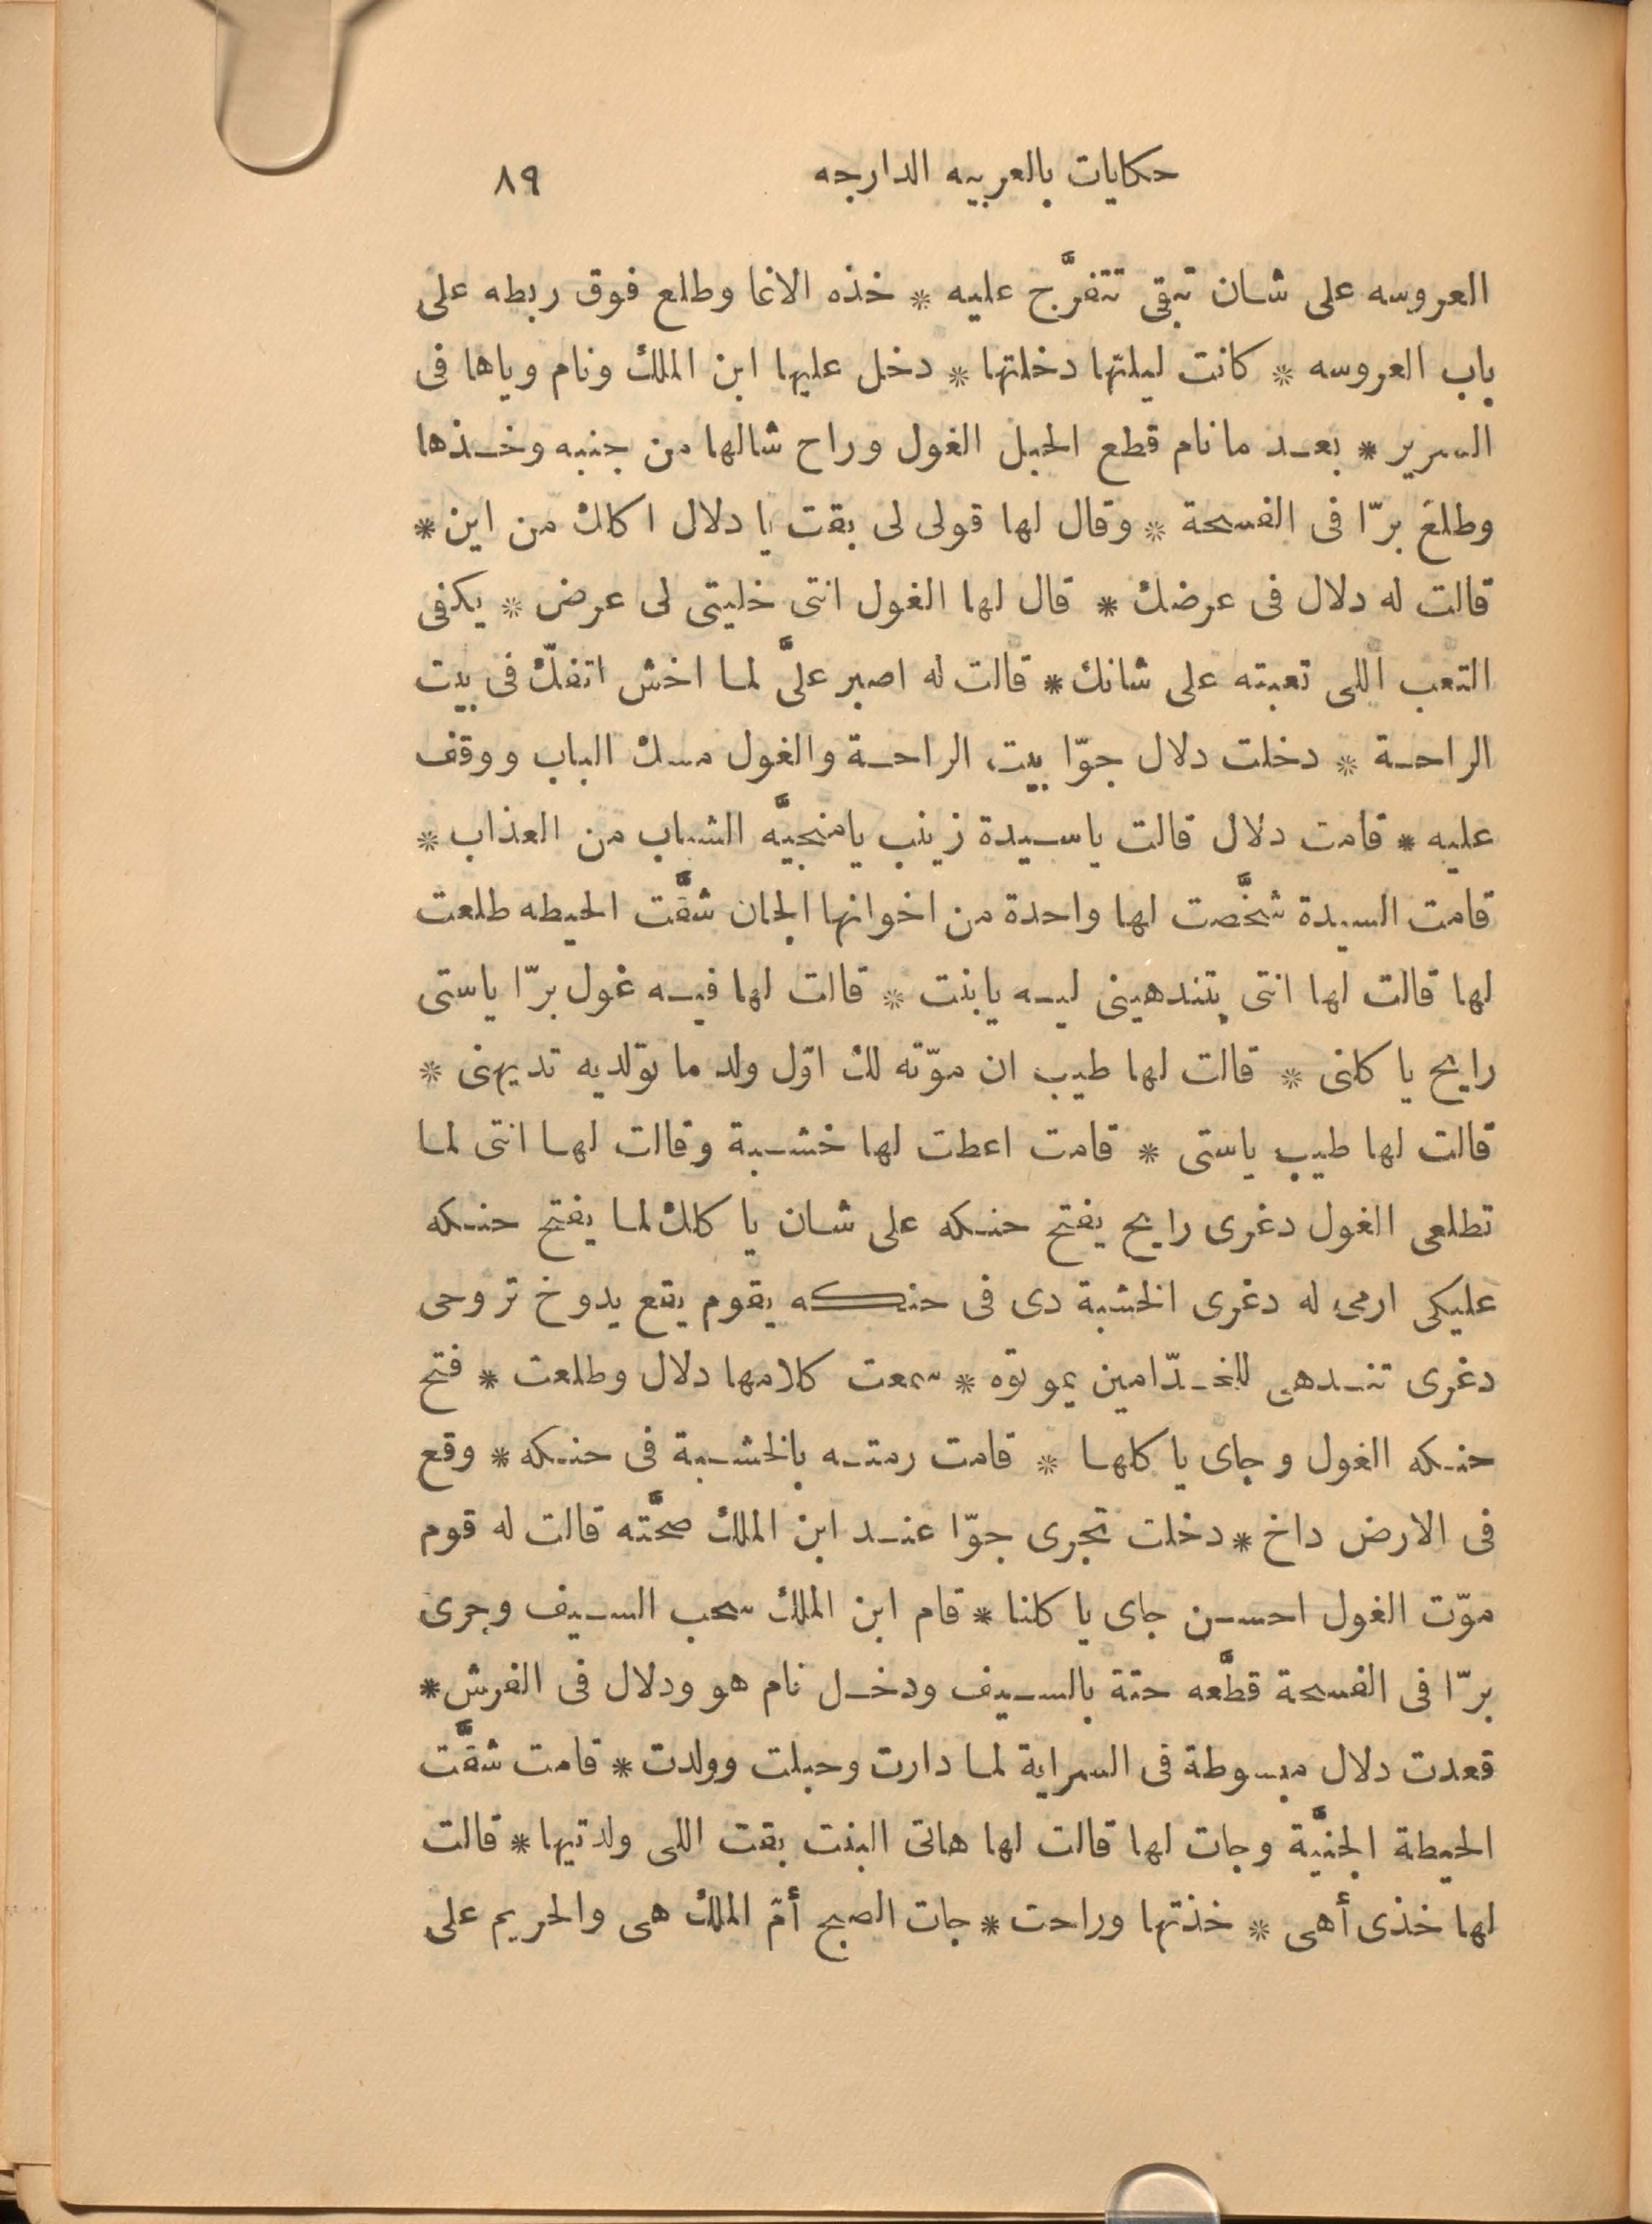 حكايات بالعربيه الدارجه ٨٩
العروسه على شان تبقى تتفرَّج عليه * خذه الاغا وطلع فوق ربطه على
باب العروسه * كانت ليلتها دخلتها * دخل عليها ابن الملك ونام وياها فى
السرير * بعد ما نام قطع الحبل الغول وراح شالها من جنبه وخذها
وطلع برّا فى الفسحة * وقال لها قولى لى بقت يا دلال اكلك من اين *
قالت له دلال فى عرضك * قال لها الغول انتى خليتى لى عرض * يكفى
التعب اللى تعبته على شانك * قالت له اصبر علىَّ لما اخش اتفكّ فى بيت
الراحة * دخلت دلال جوّا بيت الراحة والغول مسك الباب ووقف
عليه * قامت دلال قالت يا سيدة زينب يا منجيَّه الشباب من العذاب *
قامت السيدة شخَّصت لها واحدة من اخوانها الجان شقَّت الحيطه طلعت
لها قالت لها انتى بتندهينى ليه يا بنت * قالت لها فيه غول برّا ياستى
رايح يا كلنى * قالت لها طيب ان موّته لك اوّل ولد ما تولديه تديهنى *
قالت لها طيب ياستى * قامت اعطت لها خشبة وقالت لها انتى لما
تطلعى الغول دغرى رايح يفتح حنكه على شان يا كلك لما يفتح حنكه
عليكى ارمى له دغرى الخشبة دى فى حنكه يقوم يقع يدوخ تروحى
دغرى تندهى للخدّامين يموتوه * سمعت كلامها دلال وطلعت * فتح
حنكه الغول وجاى يا كلها * قامت رمته بالخشبة فى حنكه * وقع
فى الارض داخ * دخلت تجرى جوّا عند ابن الملك صحَّته قالت له قوم
موّت الغول احسن جاى يا كلنا * قام ابن الملك سحب السيف وجرى
برّا فى الفسحة قطَّعه حتة بالسيف ودخل نام هو ودلال فى الفرش *
قعدت دلال مبسوطة فى السراية لما دارت وحبلت وولدت * قامت شقَّت
الحيطة الجنيَّة وجات لها قالت لها هاتى البنت بقت اللى ولدتيها * قالت
لها خذى أهى * خذتها وراحت * جات الصبح أمّ الملك هى والحريم على